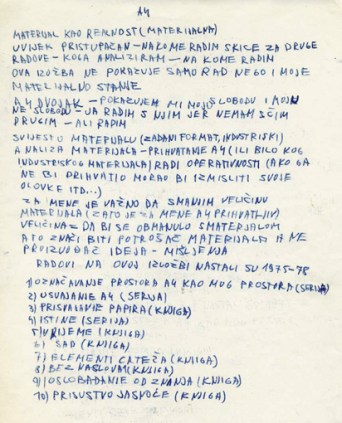 A4
MATERIJAL KAO REALNOST (MATERIJALNA)
UVIJEK PRISTUPAČAN – NA KOME RADIM SKICE ZA DRUGE
RADOVE – KOGA ANALIZIRAM – NA KOME RADIM
OVA IZOŽBA NE POKAZUJE SAMO RAD NEGO I MOJE
MATERIJALNO STANJE
A4 DVOJAK – POKAZUJEM MI MOJU SLOBODU I MOJU
NE SLOBODU – JA RADIM S NJIM JER NEMAM S ČIM
DRUGIM – ALI RADIM
SVIJEST O MATERIJALU (ZADANI FORMAT, INDUSTRIJSKI)
ANALIZA MATERIJALA – PRIHVATANJE A4 (ILI BILO KOG
INDUSTRISKOG MATERIJALA) RADI OPERATIVNOSTI (AKO GA
NE BI PRIHVATIO MORAO BI IZMISLITI SVOJE
OLOVKE ITD...)
ZA MENE JE VAŽNO DA SMANJIM VELIČINU
MATERIJALA (ZATO JE ZA MENE A4 PRIHVATLJIV)
VELIČINA = DA BI SE OBMANULO S MATERIJALOM
A TO ZNAČI BITI POTROŠAČ MATERIJALA A NE
PROIZVOĐAČ IDEJA – MIŠLJENJA
RADOVI NA OVOJ IZLOŽBI NASTALI SU 1975–78
1) OZNAČAVANJE PROSTORA A4 KAO MOG PROSTORA (SERIJA)
2) OSVAJANJE A4 (SERIJA)
3) PRISVAJANJE PAPIRA (KNJIGA)
4) ISTINE (SERIJA)
5) VRIJEME (KNJIGA)
6) SAD (KNJIGA)
7) ELEMENTI CRTEŽA (KNJIGA)
8) BEZ NASLOVA (KNJIGA)
9) OSLOBAĐANJE OD ZNANJA (KNJIGA)
10) PRISUSTVO JASNOĆE (KNJIGA)